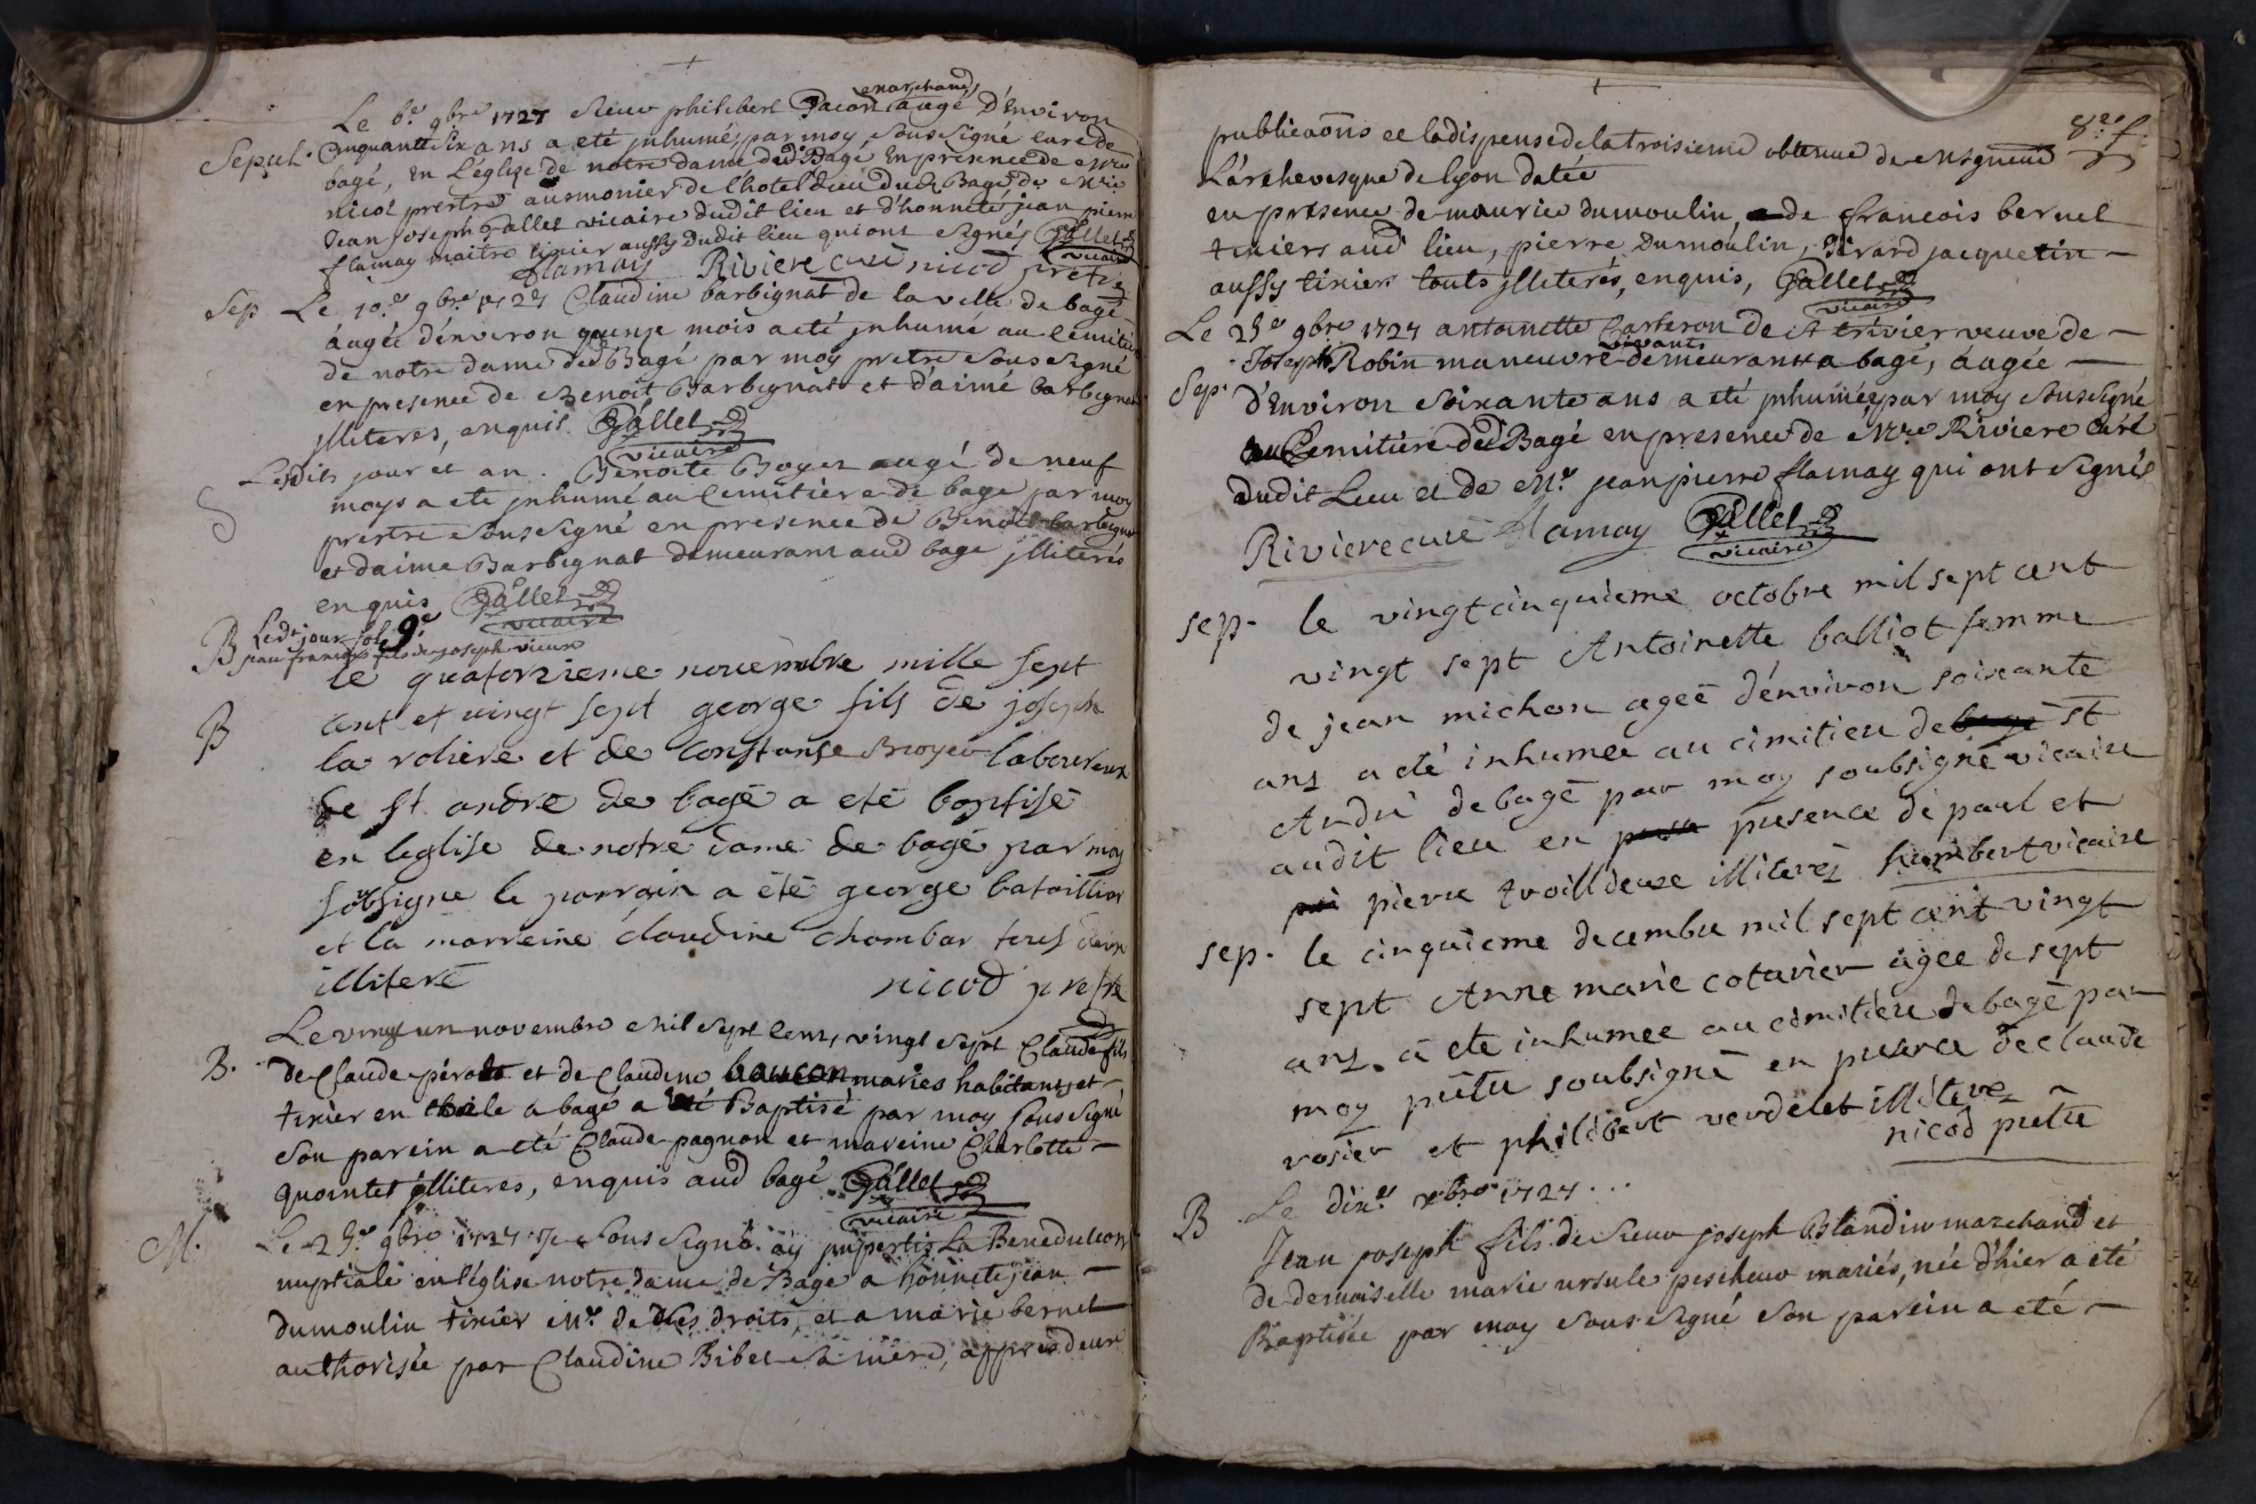 marchand
Le 6.e 9bre 1727 Sieur philibert Pacon augé D'Environ
Sepul. Cinquante Six ans a eté jnhumé, par moy, Sous Signé curé de
bagé, en L'églize de notre dame dud Bagé En presence de Mre
nicot prestre aurmonier de l'hotel dieu dud Bagé de Mre
Jean Joseph Gallet vicaire dudit lieu et d'honnete jean pierre
flamay maitre tixier aussy dudit lieu qui ont Signés Gallet
vicaire
flamay Riviere curé nicod pretre
Sep. Le 10.e 9bre 1727 Claudine barbignat de la ville de bagé
áagée d'environ quinze mois a eté jnhumé au Cemitiere
de notre dame dud Bagé par moy pretre Sous Signé
en presence de Benoit Barbignat et d'aimé barbignat
jlliterés, enquis. Gallet
vicaire
S Lesdits jour et an. Benoite Boyer augé de neuf
moys a eté jnhumé au Cemitière de bagé par moy
prestre Sous Signé en presence de Benoit barbignat
et d'aimé Barbignat demeurans aud bagé jlliterés
enquis Gallet
vicaire
B Led.t jour fol. 9.e
jean francois fils de joseph vieux
le quatorzieme novembre mille sept
B cent et vingt sept george fils de joseph
la roliere et de Constanse Broyer laboureur
de st. andre de bagé a eté baptisé
en leglise de notre dame de bagé par moy
sobsigne le parrain a été george bataillion
et la marreine claudine chambar tous deux
illiteré
nicod pretre
Le vingt un novembre Mil Sept Cent, vingt Sept Claude fils
B. de Claude péra et de Claudine baucon mariés habitans et
tixier en toile a bagé a eté Baptisé par moy Sous Signé
Son parein a eté Claude pagnon et mareine Charlotte
quointet jlliteres, enquis aud bagé Gallet
vicaire
M. Le 25.e 9bre 1727 Je Sous Signé ay jmpertis La Benediction
nuptiale en l'église notre dame de Bagé a honnete jean
dumoulin tixier M.e de Ses droits, et a marie bernet
authorisée par Claudine Bibet Sa mére, apprés deux
8.e f.
publicaons et la dispense de la troisieme obtenue de Msgneur
L'árchevesque de lyon datée
en presence de mauvrice dumoulin, de francois bernet
tixiers aud lieu, pierre Dumoulin, Girard jacquetin
aussy tixiers touts jlliterés, enquis, Gallet
vicaire
Le 25.e 9bre 1727 antoinette Carteron de St trivier veuve de
vivant
Joseph Robin maneuvre demeurant a bagé, áagée
Sep. d'Environ Soixante ans a eté jnhumée, par moy Sous Signé
au Cemitière dud Bagé en presence de Mre Riviere Curé
dudit Lieu et de M.e jean pierre flamay qui ont Signés
Riviere curé flamay Gallet
vicaire
sep. le vingtcinquieme octobre mil sept cent
vingt sept Antoinette balliot femme
de jean michon ageé d'environ soixante
ans a eté inhumee au cimitieu de bagé st
Andrè de bagé par moy soubsigné vicaire
audit lieu en presence de paul et
pierre troillieuse illiterés humbert vicaire
sep. le cinquieme decembre mil sept cent vingt
sept Anne marie cotarier agee de sept
ans. a ete inhumee au cimitiere de bagé par
moy prêtre soubsigné en presence de claude
rosier et philibert verdelet illiterez
nicod prêtre
B Le dix.e xbre 1727...
Jean joseph fils de Sieur joseph Blandin marchand et
de demoiselle marie ursule pescheur mariés, née d'hier a eté
Baptisée par moy Sous Signé Son parein a eté